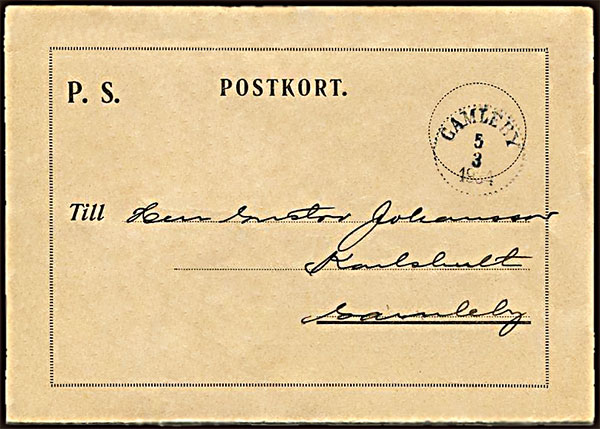 P. S.
POSTKORT.
GAMLEBY
5
3
Till Herr Gustav Johansson
Karlshult
Gamleby